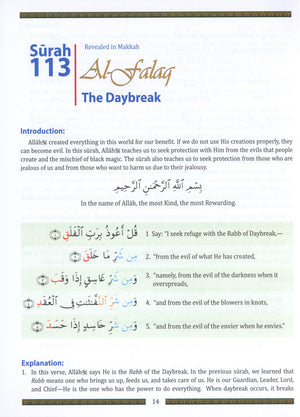 Sūrah
113
Revealed in Makkah
Al-Falaq
The Daybreak
Introduction:
Allāh created everything in this world for our benefit. If we do not use His creations properly, they
can become evil. In this sūrah, Allāh teaches us to seek protection with Him from the evils that people
create and the mischief of black magic. The sūrah also teaches us to seek protection from those who are
jealous of us and from those who want to harm us due to their jealousy.
بِسْمِ ٱللَّهِ ٱلرَّحْمَٰنِ ٱلرَّحِيمِ
In the name of Allāh, the most Kind, the most Rewarding.
قُلْ أَعُوذُ بِرَبِّ ٱلْفَلَقِ ١ 1 Say: "I seek refuge with the Rabb of Daybreak,—
مِن شَرِّ مَا خَلَقَ ٢ 2. "from the evil of what He has created,
وَمِن شَرِّ غَاسِقٍ إِذَا وَقَبَ ٣ 3. "namely, from the evil of the darkness when it
overspreads,
وَمِن شَرِّ ٱلنَّفَّٰثَٰتِ فِى ٱلْعُقَدِ ٤ 4. "and from the evil of the blowers in knots,
وَمِن شَرِّ حَاسِدٍ إِذَا حَسَدَ ٥ 5. "and from the evil of the envier when he envies."
Explanation:
1. In this verse, Allāh says He is the Rabb of the Daybreak. In the previous sūrah, we learned that
Rabb means one who brings us up, feeds us, and takes care of us. He is our Guardian, Leader, Lord,
and Chief—He is the one who has the power to do everything. When daybreak occurs, it breaks
14